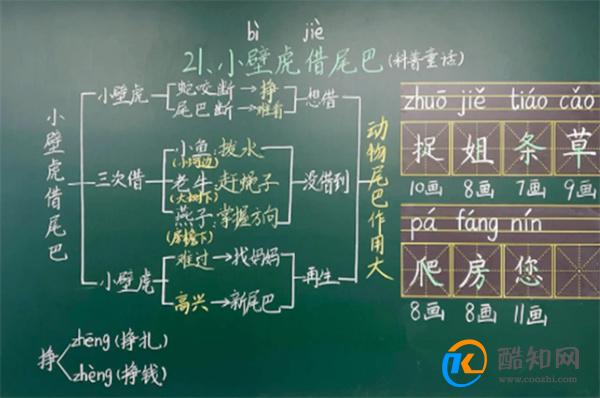 bì jiè
21、小壁虎借尾巴(科普童话)
小壁虎借尾巴
小壁虎
蛇咬断→挣
尾巴断→难看
想借
三次借
小鱼:拨水
(小河边)
老牛:赶蝇子
(大树下)
燕子:掌握方向
(房檐下)
没借到
小壁虎
难过→找妈妈
高兴→新尾巴
再生
动物尾巴作用大
挣
zhēng(挣扎)
zhèng(挣钱)
zhuō jiě tiáo cǎo
捉 姐 条 草
10画 8画 7画 9画
pá fáng nín
爬 房 您
8画 8画 11画
酷知网
www.coozhi.com